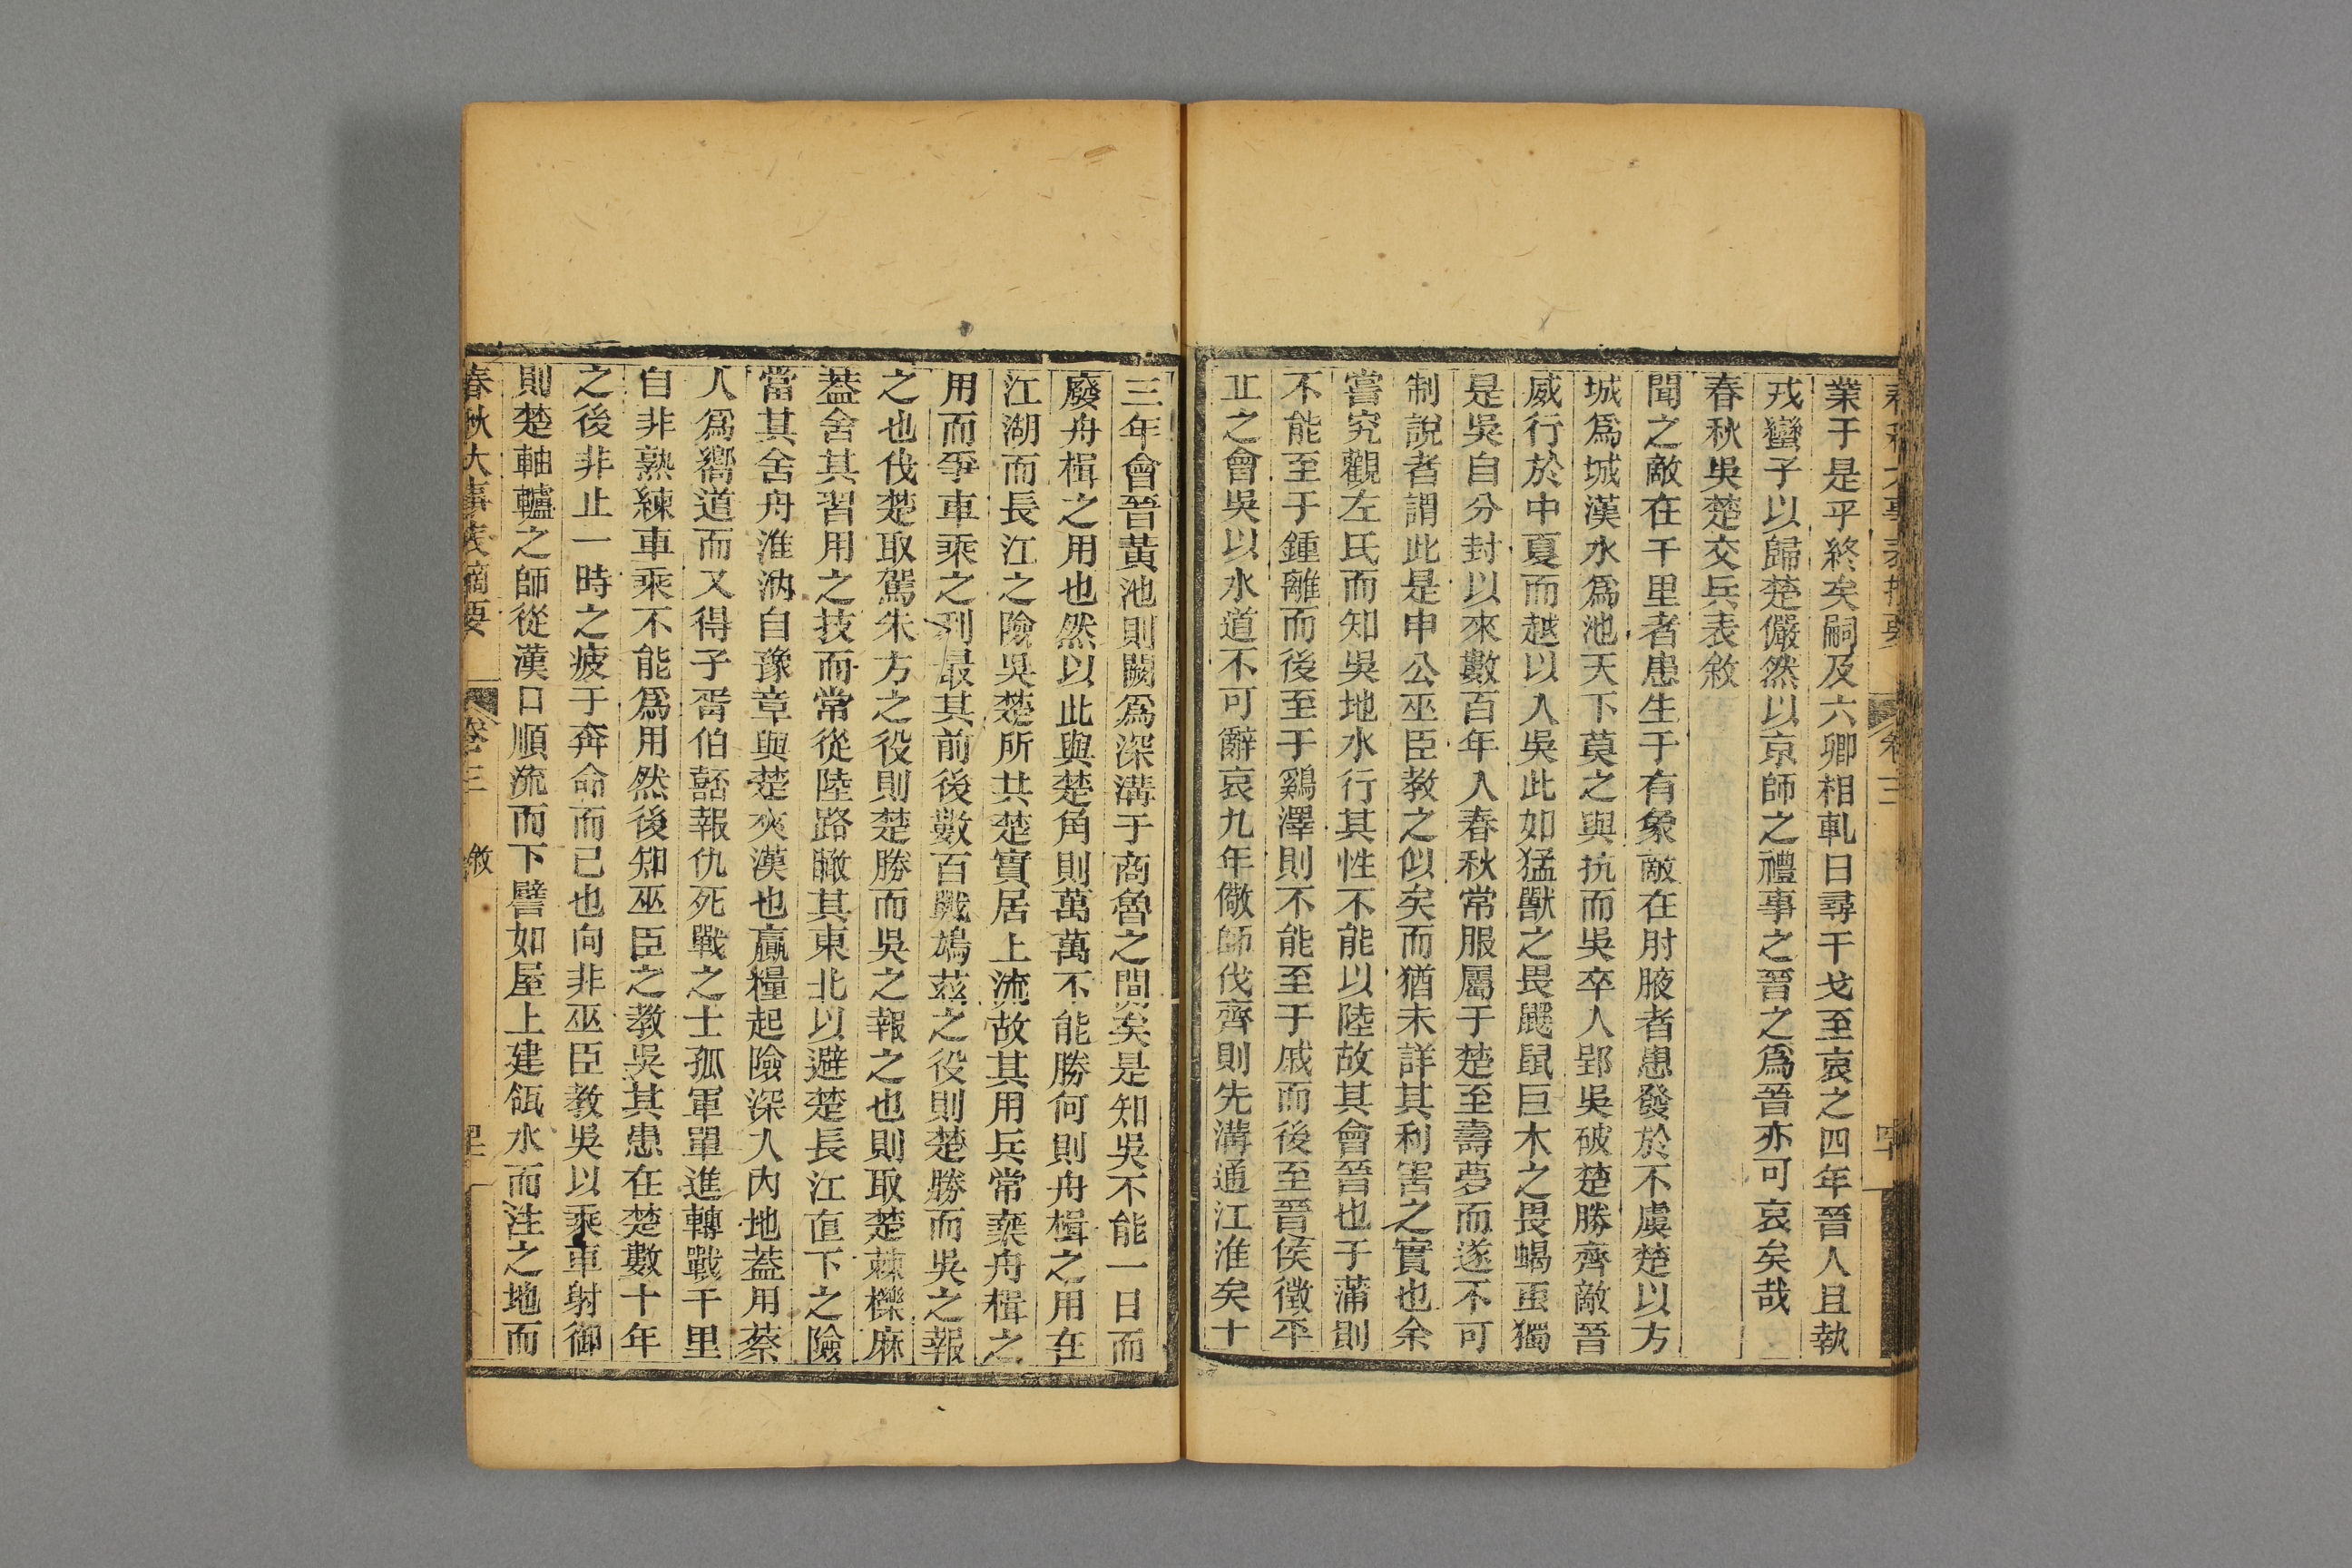 春秋大事表摘要 卷三 四十
業于是乎終矣嗣及六卿相軋日尋干戈至哀之四年晉人且執
戎蠻子以歸楚儼然以京師之禮事之晉之爲晉亦可哀矣哉
春秋吳楚交兵表敘
聞之敵在千里者患生于有象敵在肘腋者患發於不虞楚以方
城爲城漢水爲池天下莫之與抗而吳卒人郢吳破楚勝齊敵晉
威行於中夏而越以入吳此如猛獸之畏鼷鼠巨木之畏蝎䖝獨
是吳自分封以來數百年入春秋常服屬于楚至壽夢而遂不可
制說者謂此是申公巫臣教之似矣而猶未詳其利害之實也余
嘗究觀左氏而知吳地水行其性不能以陸故其會晉也于蒲則
不能至于鍾離而後至于鷄澤則不能至于戚而後至晉侯徵平
丘之會吳以水道不可辭哀九年儆師伐齊則先溝通江淮矣十
三年會晉黃池則闕爲深溝于商魯之間矣是知吳不能一日而
廢舟楫之用也然以此與楚角則萬萬不能勝何則舟楫之用在
江湖而長江之險吳楚所共楚實居上流故其用兵常棄舟楫之
用而爭車乘之利最其前後數百戰鳩茲之役則楚勝而吳之報
之也伐楚取駕朱方之役則楚勝而吳之報之也則取楚棘櫟麻
蓋舍其習用之技而常從陸路瞰其東北以避楚長江直下之險
當其舍舟淮汭自豫章與楚夾漢也贏糧起險深入內地蓋用蔡
人爲嚮道而又得子胥伯嚭報仇死戰之士孤軍單進轉戰千里
自非熟練車乘不能爲用然後知巫臣之教吳其患在楚數十年
之後非止一時之疲于奔命而已也向非巫臣教吳以乘車射御
則楚軸轤之師從漢口順流而下譬如屋上建瓴水而注之地而
春秋大事表摘要 卷三 敘